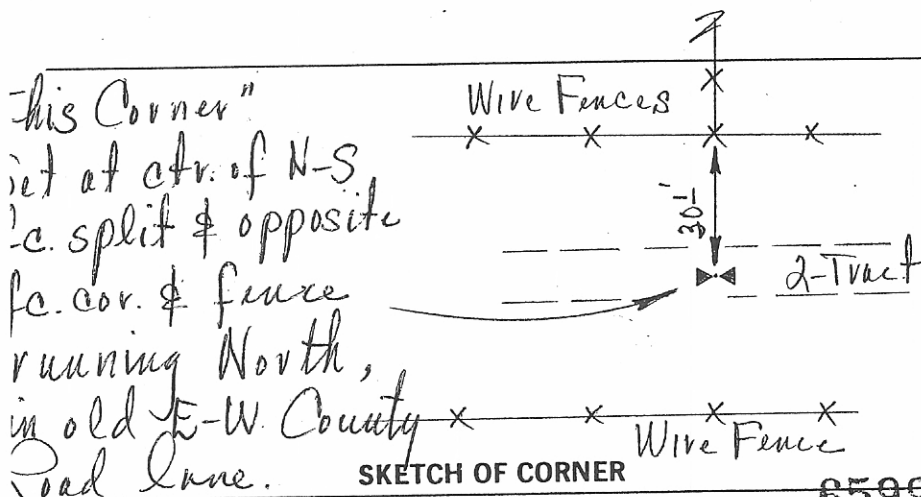 his Corner"
set at ctr. of N-S
fc. split & opposite
fc. cor. & fence
running North,
in old E-W. County
Road lane.
Wire Fences
30'
2-Tract
Wire Fence
SKETCH OF CORNER